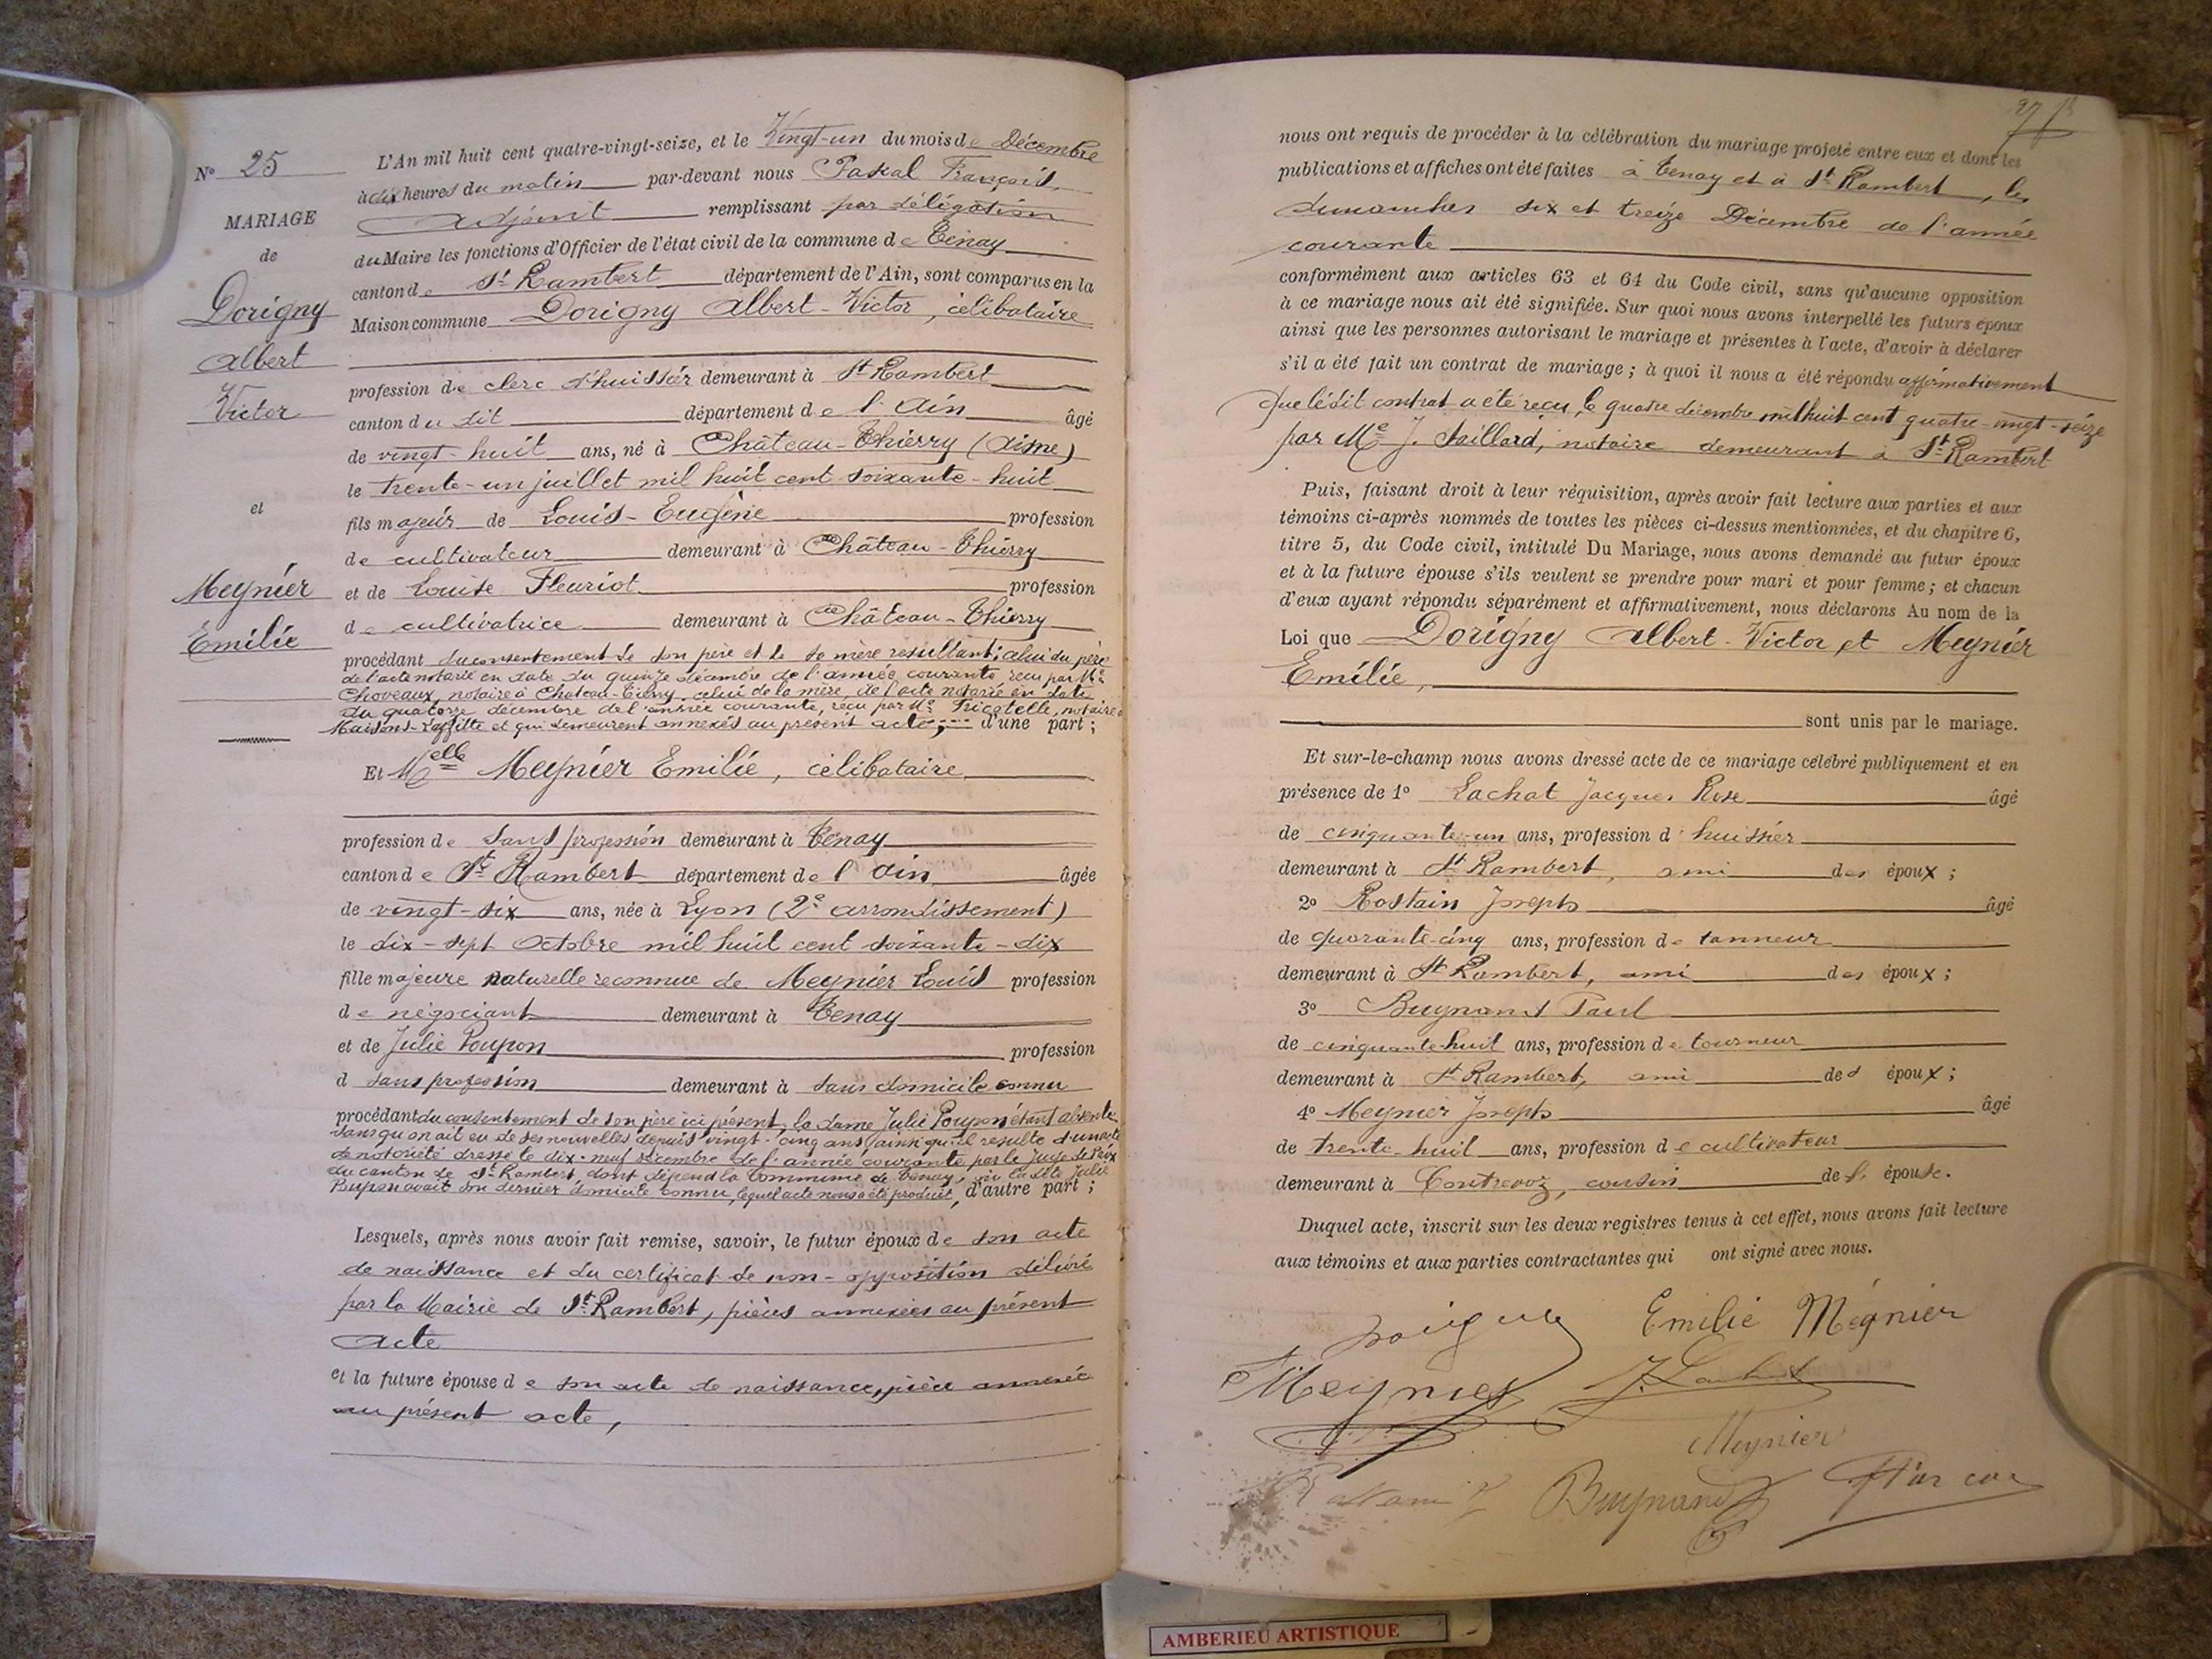 N° 25
MARIAGE
de
Dorigny
Albert
Victor
et
Meynier
Emilie
L'An mil huit cent quatre-vingt-seize, et le Vingt-un du mois de Décembre
à dix heures du matin par-devant nous Pascal François,
adjoint remplissant par délégation
du Maire les fonctions d'Officier de l'état civil de la commune de Tenay
canton de St Rambert département de l'Ain, sont comparus en la
Maison commune Dorigny Albert-Victor, célibataire
profession de clerc d'huissier demeurant à St Rambert
canton du dit département de l'Ain âgé
de vingt-huit ans, né à Château-Thierry (Aisne)
le trente-un juillet mil huit cent soixante-huit
fils majeur de Louis-Eugène profession
de cultivateur demeurant à Château-Thierry
et de Louise Fleuriot profession
de cultivatrice demeurant à Château-Thierry
procédant du consentement de son père et de sa mère résultant: celui du père
de l'acte notarié en date du quinze décembre de l'année courante reçu par Me
Choveaux, notaire à Château-Thierry, celui de la mère, de l'acte notarié en date
du quatorze décembre de l'année courante, reçu par Me Tricatelle, notaire à
Maisons-Laffitte et qui demeurent annexés au présent acte, d'une part;
Et Melle Meynier Emilie, célibataire
profession de sans profession demeurant à Tenay
canton de St Rambert département de l'Ain âgée
de vingt-six ans, née à Lyon (2e arrondissement)
le dix-sept Octobre mil huit cent soixante-dix
fille majeure naturelle reconnue de Meynier Louis profession
de négociant demeurant à Tenay
et de Julie Poupon profession
d sans profession demeurant à sans domicile connu
procédant du consentement de son père ici présent, la dame Julie Poupon étant absente
sans qu'on ait eu de ses nouvelles depuis vingt-cinq ans, ainsi qu'il résulte d'un acte
de notoriété dressé le dix-neuf décembre de l'année courante par le Juge de Paix
du canton de St Rambert dont dépend la Commune de Tenay, où la dite Julie
Poupon avait son dernier domicile connu, lequel acte nous a été produit, d'autre part;
Lesquels, après nous avoir fait remise, savoir, le futur époux de son acte
de naissance et du certificat de non-opposition délivré
par la Mairie de St Rambert, pièces annexées au présent
acte
et la future épouse de son acte de naissance, pièce annexée
au présent acte,
nous ont requis de procéder à la célébration du mariage projeté entre eux et dont les
publications et affiches ont été faites à Tenay et à St Rambert, les
dimanches six et treize Décembre de l'année
courante
conformément aux articles 63 et 64 du Code civil, sans qu'aucune opposition
à ce mariage nous ait été signifiée. Sur quoi nous avons interpellé les futurs époux
ainsi que les personnes autorisant le mariage et présentes à l'acte, d'avoir à déclarer
s'il a été fait un contrat de mariage; à quoi il nous a été répondu affirmativement
que lédit contrat a été reçu, le quatre décembre mil huit cent quatre-vingt-seize
par Me J. Saillard, notaire demeurant à St Rambert
Puis, faisant droit à leur réquisition, après avoir fait lecture aux parties et aux
témoins ci-après nommés de toutes les pièces ci-dessus mentionnées, et du chapitre 6,
titre 5, du Code civil, intitulé Du Mariage, nous avons demandé au futur époux
et à la future épouse s'ils veulent se prendre pour mari et pour femme; et chacun
d'eux ayant répondu séparément et affirmativement, nous déclarons Au nom de la
Loi que Dorigny Albert-Victor et Meynier
Emilie,
sont unis par le mariage.
Et sur-le-champ nous avons dressé acte de ce mariage célébré publiquement et en
présence de 1° Lachat Jacques Rose âgé
de cinquante-un ans, profession d'huissier
demeurant à St Rambert, ami des époux;
2° Rostain Joseph âgé
de quarante-cinq ans, profession de tanneur
demeurant à St Rambert, ami des époux;
3° Buynand Paul
de cinquante-huit ans, profession de tourneur
demeurant à St Rambert, ami des époux;
4° Meynier Joseph âgé
de trente-huit ans, profession de cultivateur
demeurant à Contrevoz, cousin de l'épouse.
Duquel acte, inscrit sur les deux registres tenus à cet effet, nous avons fait lecture
aux témoins et aux parties contractantes qui ont signé avec nous.
Emilie Mégnier
Meynier J. Lachat
Meynier
Buynand
AMBERIEU ARTISTIQUE